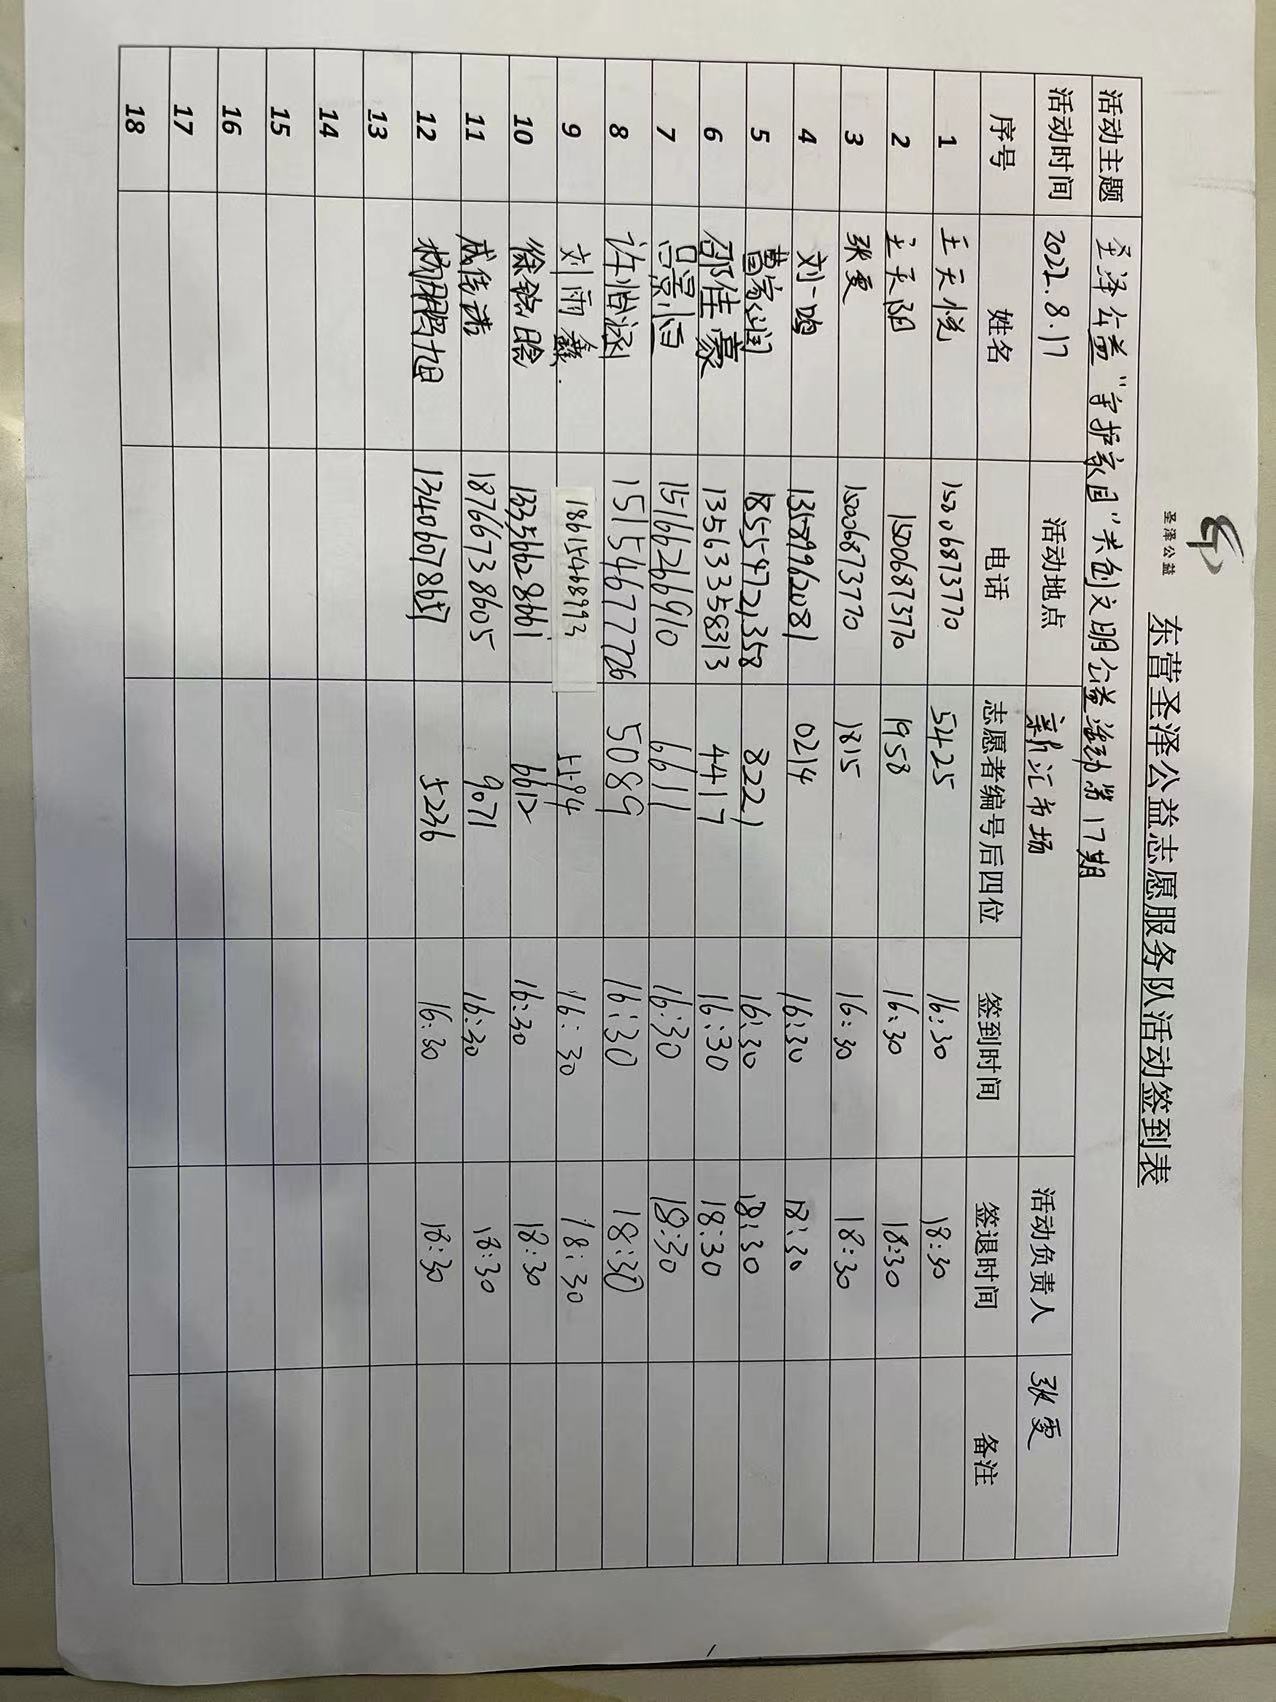 圣泽公益
东营圣泽公益志愿服务队活动签到表
活动主题 圣泽公益“守护家园”共创文明公益活动第17期
活动时间 2022.8.17 活动地点 新汇市场 活动负责人 张雯
序号 姓名 电话 志愿者编号后四位 签到时间 签退时间 备注
1 王天悦 15006873770 5425 16:30 18:30
2 王天阳 15006873770 1958 16:30 18:30
3 张雯 15006873770 1815 16:30 18:30
4 刘一鸣 13589962081 0214 16:30 18:30
5 曹家润 18554721358 8221 16:30 18:30
6 邵佳豪 13563358313 4417 16:30 18:30
7 吕景恒 15166266910 6611 16:30 18:30
8 许怡涵 15154677726 5089 16:30 18:30
9 刘雨鑫 18615468993 16:30 18:30
10 徐铭晗 13356628661 6612 16:30 18:30
11 18766738605 9071 16:30 18:30
12 13406078657 5236 16:30 18:30
13
14
15
16
17
18